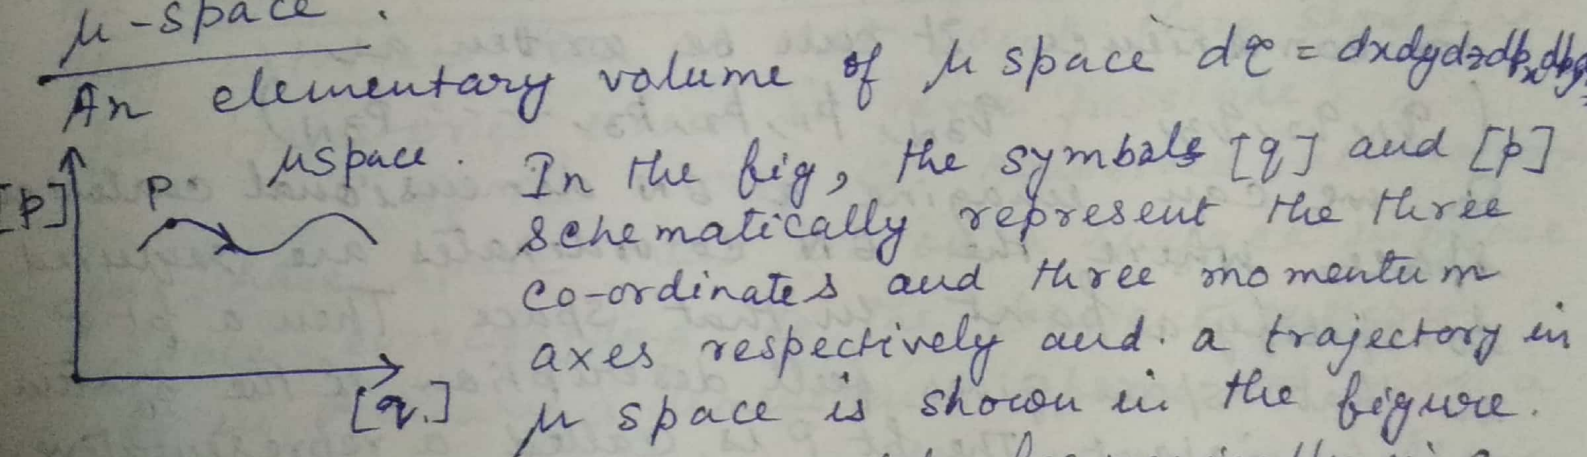 μ-space.
An elementary volume of μ space dτ = dxdydzdpxdpy
μ space.
In the fig, the symbols [q] and [p]
[p]
P
schematically represent the three
co-ordinates and three momentum
axes respectively and a trajectory in
[q.]
μ space is shown in the figure.